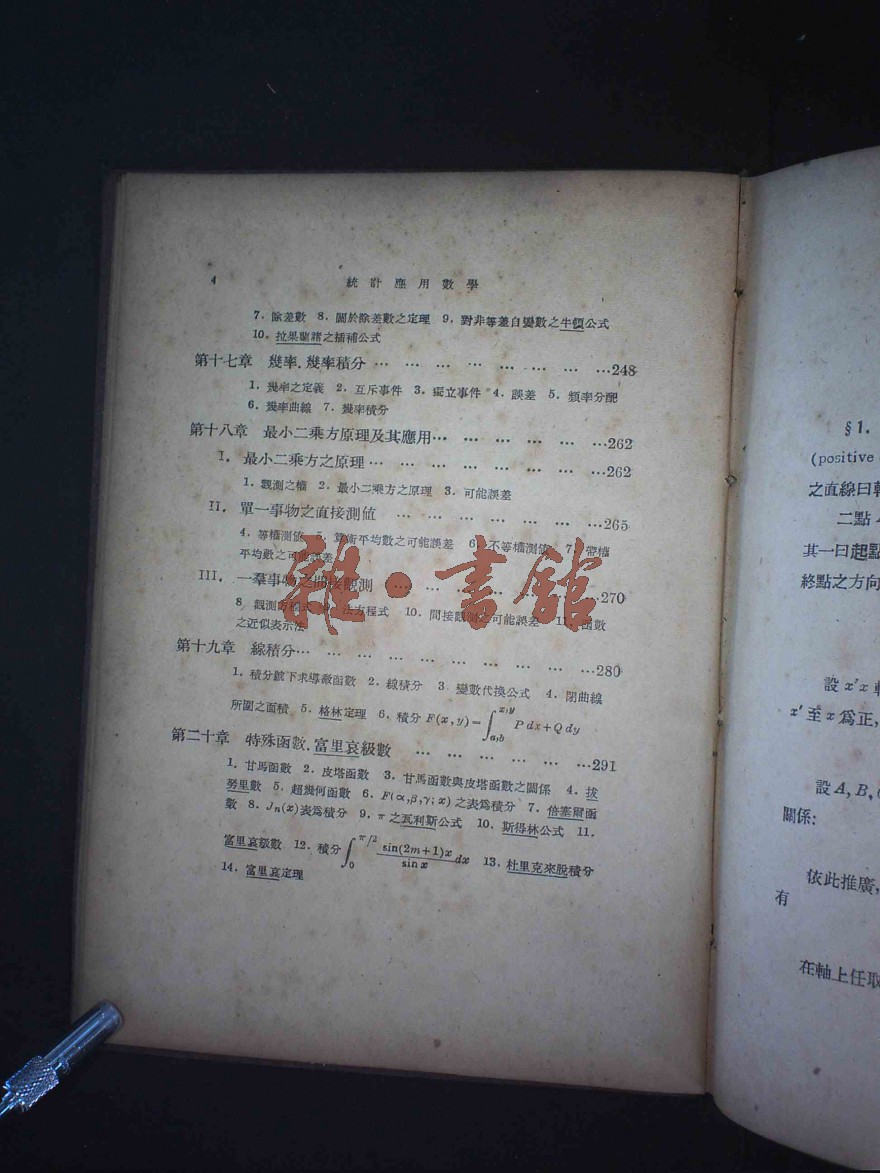 4 統計應用數學
7. 除差數 8. 關於除差數之定理 9. 對非等差自變數之牛頓公式
10. 拉果蘭諸之插補公式
第十七章 幾率.幾率積分 … … … … … … … …248
1. 幾率之定義 2. 互斥事件 3. 獨立事件 4. 誤差 5. 頻率分配
6. 幾率曲線 7. 幾率積分
第十八章 最小二乘方原理及其應用… … … … … … …262
I. 最小二乘方之原理… … … … … … … …262
1. 觀測之權 2. 最小二乘方之原理 3. 可能誤差
II. 單一事物之直接測值 … … … … … … …265
4. 等權測值 5. 算術平均數之可能誤差 6. 不等權測值 7. 帶權
平均數之可能誤差
III. 一羣事物之間接觀測 … … … … … … …270
8. 觀測方程式 9. 法方程式 10. 間接觀測之可能誤差 11. 函數
之近似表示法
第十九章 線積分… … … … … … … … … …280
1. 積分號下求導微函數 2. 線積分 3. 變數代換公式 4. 閉曲線
所圍之面積 5. 格林定理 6. 積分 F(x, y)=∫_{a,b}^{x,y} P dx+Q dy
第二十章 特殊函數.富里哀級數 … … … … … …291
1. 甘馬函數 2. 皮塔函數 3. 甘馬函數與皮塔函數之關係 4. 拔
勞里數 5. 超幾何函數 6. F(α,β,γ; x) 之表爲積分 7. 倍塞爾函
數 8. Jₙ(x)表爲積分 9. π 之瓦利斯公式 10. 斯得林公式 11.
富里哀級數 12. 積分∫_0^{π/2} sin(2m+1)x/sin x dx 13. 杜里克來脫積分
14. 富里哀定理
雜·書館
§1.
(positive
之直線曰軸
二點
其一曰起點
終點之方向
設 x′x 軸
x′ 至 x 爲正,
設 A, B,
關係:
依此推廣,
有
在軸上任取